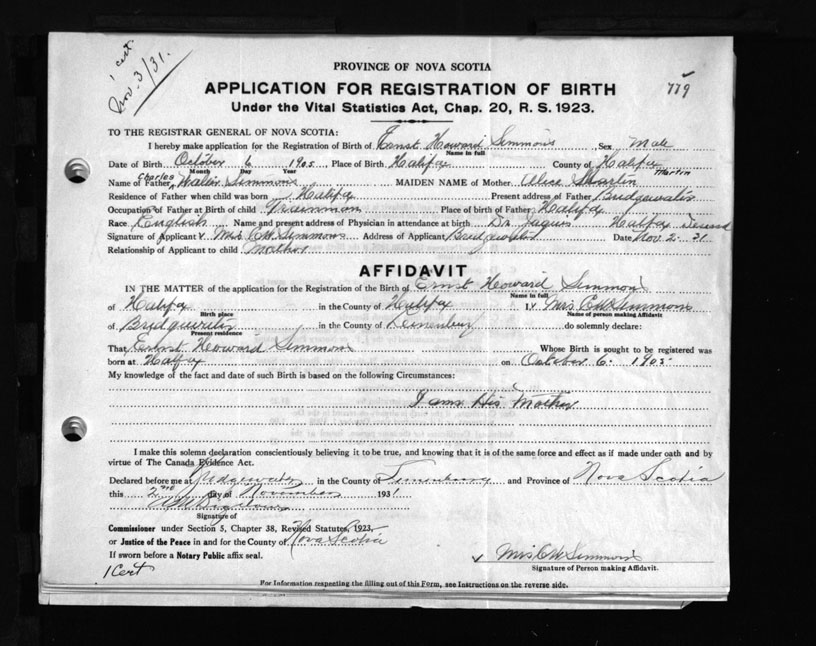 1 cert.
Nov. 3/31.
779
PROVINCE OF NOVA SCOTIA
APPLICATION FOR REGISTRATION OF BIRTH
Under the Vital Statistics Act, Chap. 20, R. S. 1923.
TO THE REGISTRAR GENERAL OF NOVA SCOTIA:
I hereby make application for the Registration of Birth of Ernst Howard Simmons Sex Male
Name in full
Date of Birth October 6 1905 Place of Birth Halifax County of Halifax
Month Day Year
Charles Martin
Name of Father Walter Simmons MAIDEN NAME of Mother Alice Martin
Residence of Father when child was born Halifax Present address of Father Bridgewater
Occupation of Father at Birth of child Trainman Place of birth of Father Halifax
Race English Name and present address of Physician in attendance at birth Dr. Halifax
Signature of Applicant Mrs C W Simmons Address of Applicant Bridgewater Date Nov 2 - 31
Relationship of Applicant to child Mother
AFFIDAVIT
IN THE MATTER of the application for the Registration of the Birth of Ernst Howard Simmons
Name in full
of Halifax in the County of Halifax I, Mrs C W Simmons
Birth place Name of person making Affidavit
of Bridgewater in the County of do solemnly declare:
Present residence
That Ernst Howard Simmons Whose Birth is sought to be registered was
born at Halifax on October 6 1905
My knowledge of the fact and date of such Birth is based on the following Circumstances:
I am His Mother
I make this solemn declaration conscientiously believing it to be true, and knowing that it is of the same force and effect as if made under oath and by
virtue of The Canada Evidence Act.
Declared before me at Bridgewater in the County of Lunenburg and Province of Nova Scotia
this 2nd day of November 1931
Signature of
Commissioner under Section 5, Chapter 38, Revised Statutes, 1923,
or Justice of the Peace in and for the County of Nova Scotia
If sworn before a Notary Public affix seal.
Mrs C W Simmons
Signature of Person making Affidavit.
1 Cert
For Information respecting the filling out of this Form, see Instructions on the reverse side.